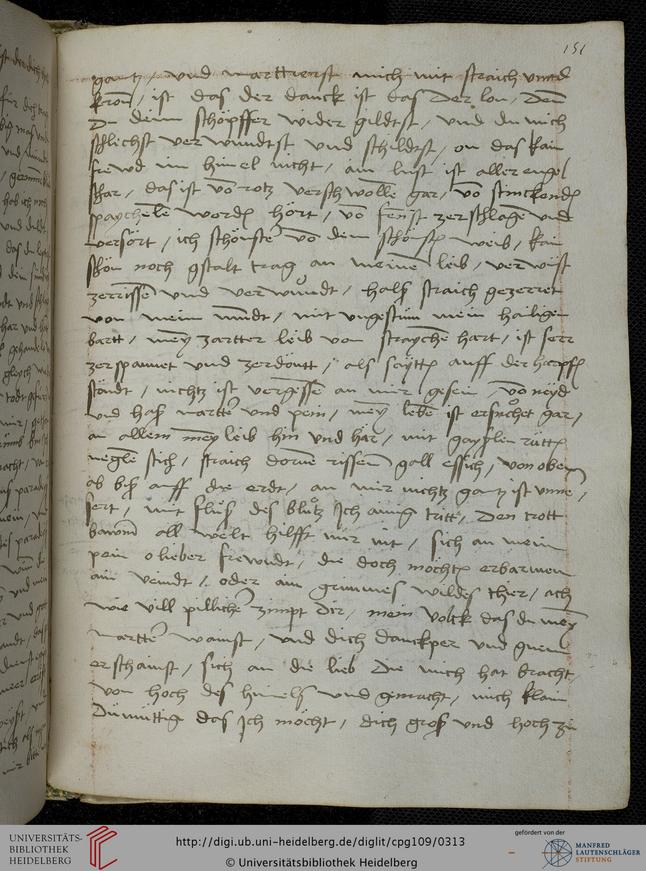 151
gantz / vnd marttrerst mich mit straich vnnd
kron / ist das der danck ist das der lon / den
du deim schöpffer wider giltst / vnd du mich
schlechst verwundtst vnd schiltst / on das kain
frewd im himel nicht / ain lust ist aller engel
schar / das ist vō rotz verschwolle gar / vō stinckendē
spaychele wordē hört / vō feust zerschlagē vnd
versört / ich schönste vō dem schönstē weib / kain
schön noch gstalt trag an meinē leib / verwüst
zerrissē vnd verwundt / halß straich gezerret
von meim mundt / mit vngestüm mein hailigen
bartt / mey zartter leib von straychē hart / ist serr
zerspannet vnd zerdönt / als saytē auff der harpffē
stondt / nichtz ist vergessē an mir gesein / vō neyd
vnd haß martter vnd pein / mey lebē ist ersuchet gar /
an allem mey leib hin vnd har / mit gayslen rüttē
negle stich / straich dorne rissen gall essich / von oben
ab biß auff die erdt / an mir nichtz gantz ist vnuer
sert / mit fluß des blůtz Ich ainig tritt / den trott
bawm all welt hilfft mir nit / sich an mein
pein o lieber frewndt / die doch möchtē erbarmen
ain veindt / oder ain grimmes wildes thier / ach
wie vill pillicher zimpt dir / mein volck das du mey
martter wainst / vnd dich danckper vnd
erschainst / sich an die lieb die mich hat bracht /
von hoch des himels vnd gemacht / mich klain
Dümüttig das Ich möcht / dich groß vnd hoch zu
UNIVERSITÄTS-
BIBLIOTHEK
HEIDELBERG
http://digi.ub.uni-heidelberg.de/diglit/cpg109/0313
© Universitätsbibliothek Heidelberg
gefördert von der
MANFRED
LAUTENSCHLÄGER
STIFTUNG